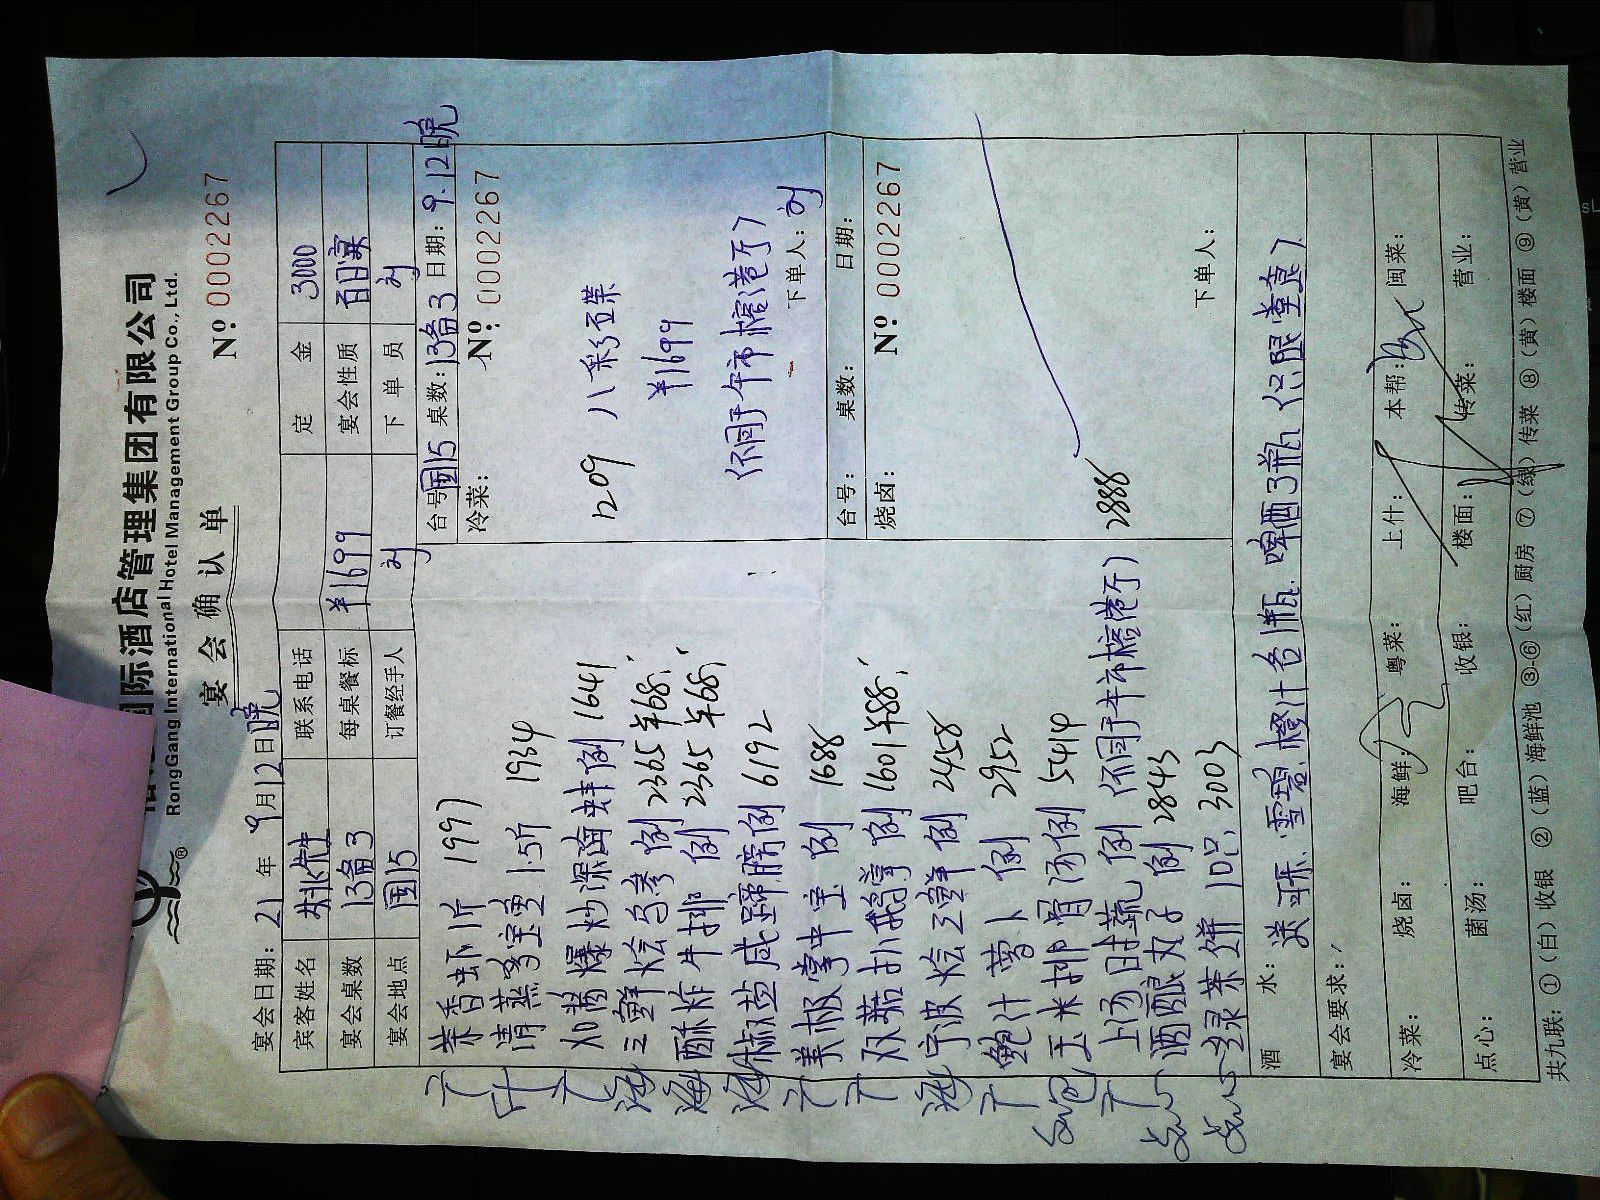 国际酒店管理集团有限公司
RongGang International Hotel Management Group Co., Ltd.
宴会确认单
Nº: 0002267
宴会日期: 21 年 9月12日晚
宾客姓名 联系电话 定金 3000
宴会桌数 13备3 每桌餐标 ¥1699 宴会性质 百日宴
宴会地点 国15 订餐经手人 刘 下单员 刘
茶香虾1斤 1997
清蒸多宝鱼 1.5斤 1934
爆炒深海蚌例 1641
三鲜烩乌参 例 2365 半68,
酥炸牛排 例 2365 半68,
椒盐咸蹄膀例 6192
美极掌中宝 例 1688
双菇扒鹅掌 例 1601 半88,
宁波烩三鲜 例 2458
鲍汁萝卜 例 2952
玉米排骨汤例 5414
上汤时蔬 例 (不同于午市榕港厅) 2888
酒酿丸子 例 2843
绿茶饼 10只 3003
台号: 国15 桌数: 13备3 日期: 9.12晚
冷菜: Nº: 0002267
1209 八彩碟
¥1699
(不同于午市榕港厅)
下单人: 刘
台号: 桌数: 日期:
烧卤: Nº: 0002267
下单人:
酒水: 送可乐.雪碧.橙汁各1瓶.啤酒3瓶(只限堂食)
宴会要求:
冷菜: 烧卤: 海鲜: 粤菜: 上什: 本帮: 闽菜:
点心: 菌汤: 吧台: 收银: 楼面: 传菜: 营业:
共九联: ①(白)收银 ②(蓝)海鲜池 ③-⑥(红)厨房 ⑦(绿)传菜 ⑧(黄)楼面 ⑨(黄)营业